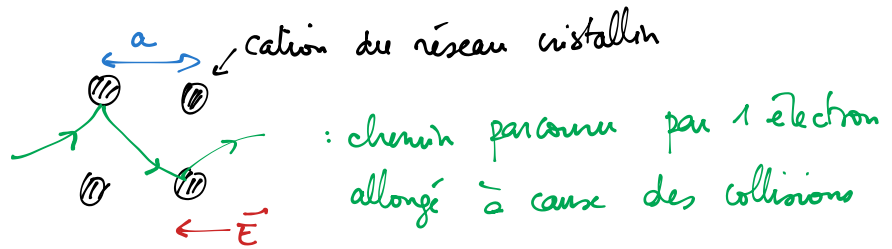 a
cation du réseau cristallin
: chemin parcouru par 1 électron
allongé à cause des collisions
E